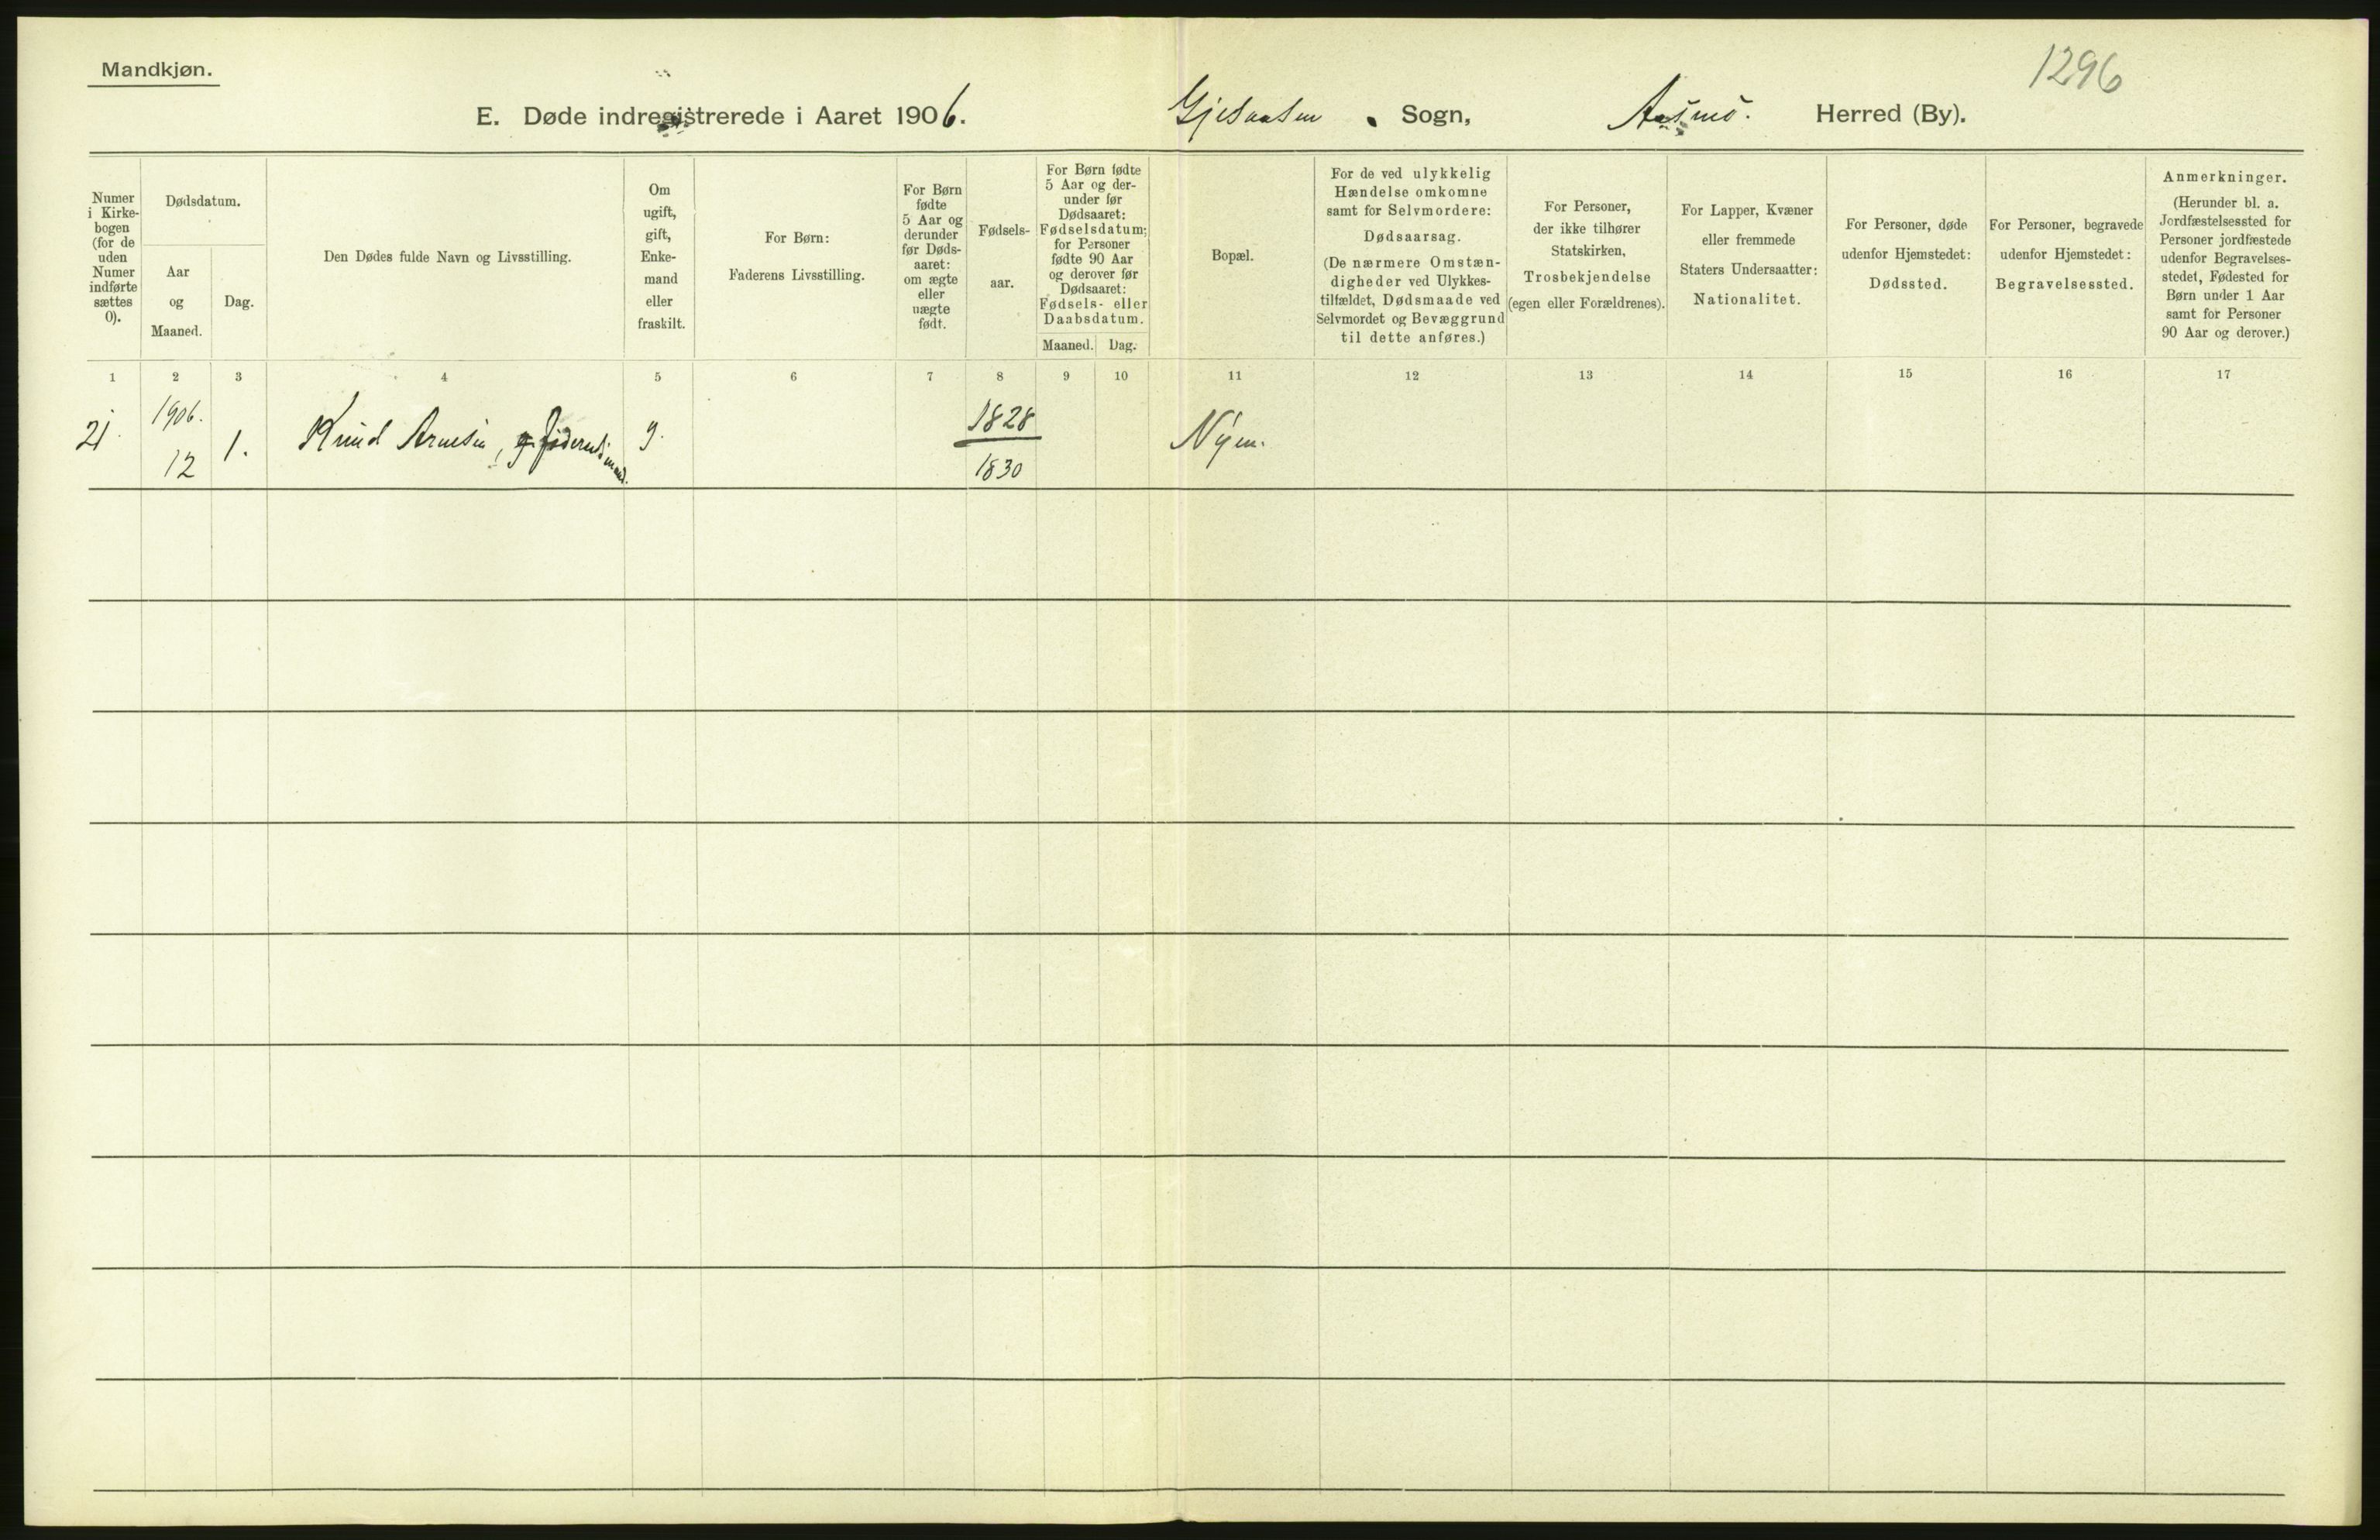 Mandkjøn.
1296
E. Døde indregistrerede i Aaret 1906. Gjesaasen Sogn, Aasnes. Herred (By).
Numer i Kirke-bogen (for de uden Numer indførte sættes 0).
Dødsdatum.
Aar og Maaned.
Dag.
Den Dødes fulde Navn og Livsstilling.
Om ugift, gift, Enke-mand eller fraskilt.
For Børn:
Faderens Livsstilling.
For Børn fødte 5 Aar og derunder før Døds-aaret: om ægte eller uægte født.
Fødsels-aar.
For Børn fødte 5 Aar og der-under før Dødsaaret: Fødselsdatum; for Personer fødte 90 Aar og derover før Dødsaaret: Fødsels- eller Daabsdatum.
Maaned. Dag.
Bopæl.
For de ved ulykkelig Hændelse omkomne samt for Selvmordere:
Dødsaarsag.
(De nærmere Omstæn-digheder ved Ulykkes-tilfældet, Dødsmaade ved Selvmordet og Bevæggrund til dette anføres.)
For Personer, der ikke tilhører Statskirken, Trosbekjendelse (egen eller Forældrenes).
For Lapper, Kvæner eller fremmede Staters Undersaatter: Nationalitet.
For Personer, døde udenfor Hjemstedet: Dødssted.
For Personer, begravede udenfor Hjemstedet: Begravelsessted.
Anmerkninger.
(Herunder bl. a. Jordfæstelsessted for Personer jordfæstede udenfor Begravelses-stedet, Fødested for Børn under 1 Aar samt for Personer 90 Aar og derover.)
1 2 3 4 5 6 7 8 9 10 11 12 13 14 15 16 17
21. 1906. 12 1. Knud Arnesen, g. 1828 1830 Nyen.